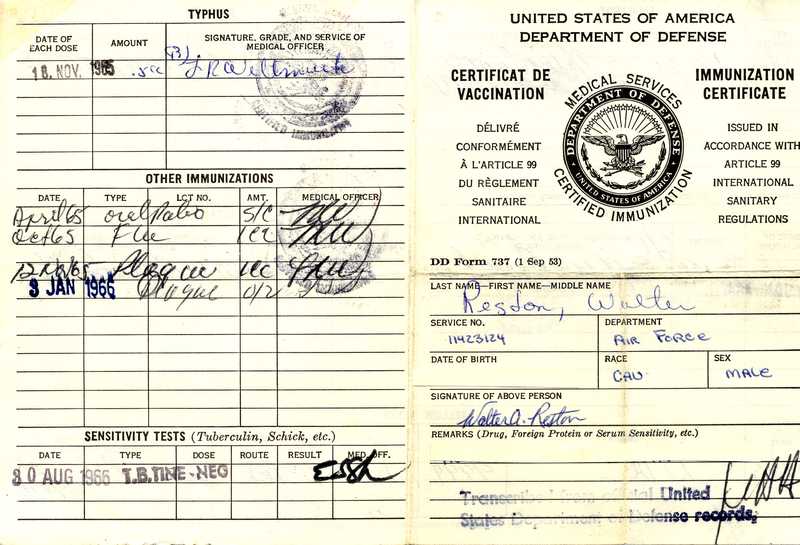 TYPHUS
DATE OF EACH DOSE AMOUNT SIGNATURE, GRADE, AND SERVICE OF MEDICAL OFFICER
18 NOV. 1965 .5cc
OTHER IMMUNIZATIONS
DATE TYPE LOT NO. AMT. MEDICAL OFFICER
April 65 oral Polio
Oct 65 Flu
12 Nov 65 Plague
3 JAN 1966 Plague
SENSITIVITY TESTS (Tuberculin, Schick, etc.)
DATE TYPE DOSE ROUTE RESULT MED. OFF.
30 AUG 1966 T.B. TINE-NEG
UNITED STATES OF AMERICA
DEPARTMENT OF DEFENSE
CERTIFICAT DE VACCINATION
DÉLIVRÉ
CONFORMÉMENT
À L'ARTICLE 99
DU RÈGLEMENT
SANITAIRE
INTERNATIONAL
MEDICAL SERVICES
DEPARTMENT OF DEFENSE
UNITED STATES OF AMERICA
CERTIFIED IMMUNIZATION
IMMUNIZATION CERTIFICATE
ISSUED IN
ACCORDANCE WITH
ARTICLE 99
INTERNATIONAL
SANITARY
REGULATIONS
DD Form 737 (1 Sep 53)
LAST NAME—FIRST NAME—MIDDLE NAME
Reston, Walter
SERVICE NO. DEPARTMENT
11423124 AIR FORCE
DATE OF BIRTH RACE SEX
CAU MALE
SIGNATURE OF ABOVE PERSON
Walter A. Reston
REMARKS (Drug, Foreign Protein or Serum Sensitivity, etc.)
Transcribed from official United
States Department of Defense records.